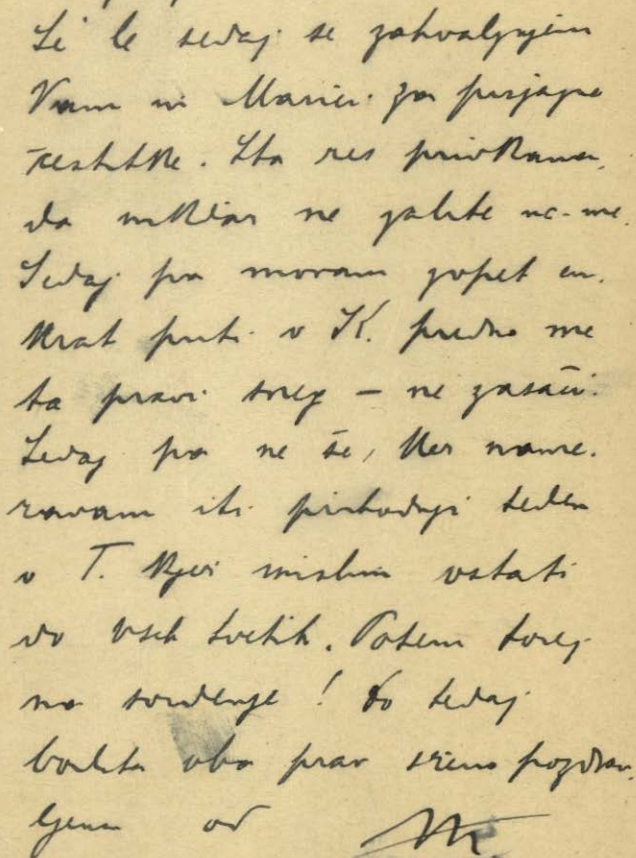 Še le sedaj se zahvaljujem
Vam in Marici za prijazne
čestitke. Sta res prvokrasna,
da nikdar ne zabite na-me.
Sedaj pa moram zopet en-
krat priti v K. predno me
ta pravi sneg – ne zasači.
Sedaj pa ne še, ker name-
ravam iti prihodnji teden
v T. Kjer mislim ostati
do vseh svetih. Potem torej
na svidenje! Do tedaj
bodita oba prav srčno pozdrav-
ljena od